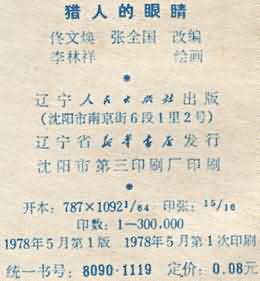 猎人的眼睛
佟文焕 张全国 改编
李林祥 绘画
辽宁人民出版社出版
(沈阳市南京街6段1里2号)
辽宁省新华书店发行
沈阳市第三印刷厂印刷
开本:787×1092 1/64 印张:15/16
印数:1—300,000
1978年5月第1版 1978年5月第1次印刷
统一书号:8090·1119 定价:0.08元